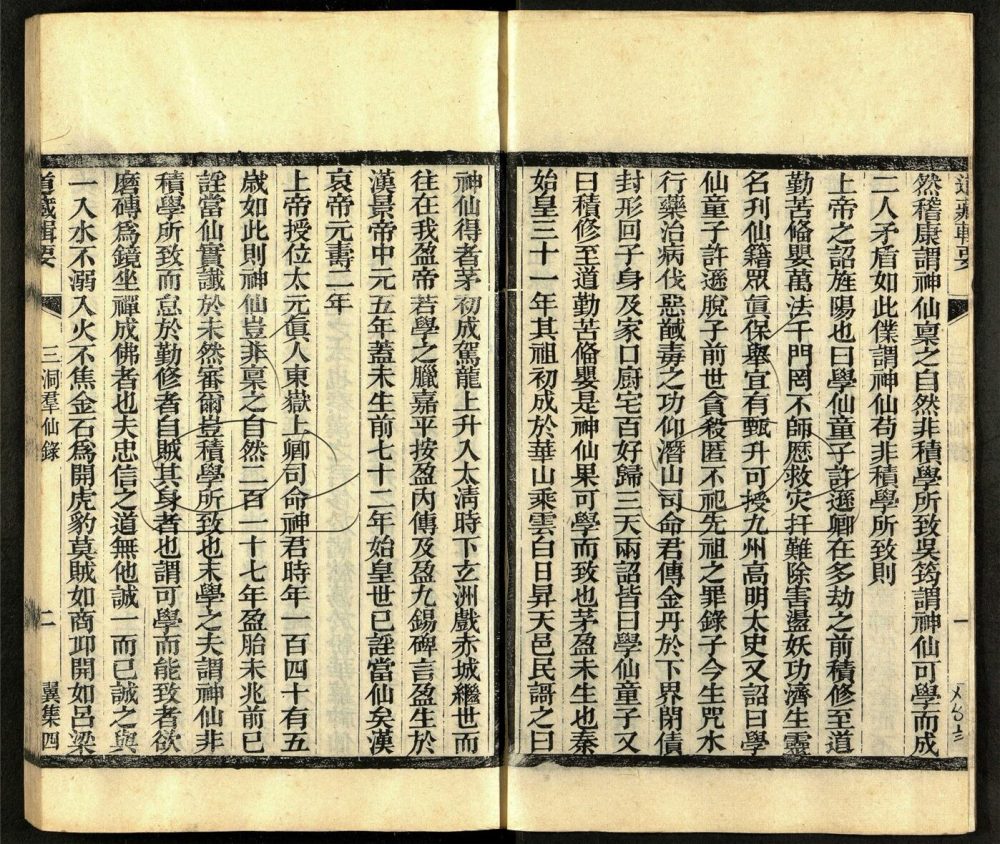 道藏輯要
一
然稽康謂神仙稟之自然非積學所致吳筠謂神仙可學而成
二人矛盾如此僕謂神仙苟非積學所致則
上帝之詔旌陽也曰學仙童子許遜卿在多劫之前積修至道
勤苦俻嬰萬法千門罔不師歷救灾扞難除害盪妖功濟生靈
名刋仙籍眾眞保舉宜有甄升可授九州高明太史又詔曰學
仙童子許遜脫子前世貪殺匿不祀先祖之罪錄子今生咒水
行藥治病伐惡馘毒之功仰潛山司命君傳金丹於下界閉債
封形回子身及家口厨宅百好歸三天兩詔皆曰學仙童子又
曰積修至道勤苦俻嬰是神仙果可學而致也茅盈未生也秦
始皇三十一年其祖初成於華山乘雲白日昇天邑民謌之曰
神仙得者茅初成駕龍上升入太清時下玄洲戲赤城繼世而
往在我盈帝若學之臘嘉平按盈內傳及盈九錫碑言盈生於
漢景帝中元五年蓋未生前七十二年始皇世已謡當仙矣漢
哀帝元壽二年
上帝授位太元眞人東嶽上卿司命神君時年一百四十有五
歲如此則神仙豈非稟之自然二百一十七年盈胎未兆前已
謡當仙實讖於未然審爾豈積學所致也末學之夫謂神仙非
積學所致而怠於勤修者自賊其身者也謂可學而能致者欲
磨磚爲鏡坐禪成佛者也夫忠信之道無他誠一而已誠之與
一入水不溺入火不焦金石爲開虎豹莫賊如商丘開如呂梁
道藏輯要 三洞羣仙錄 二 翼集四